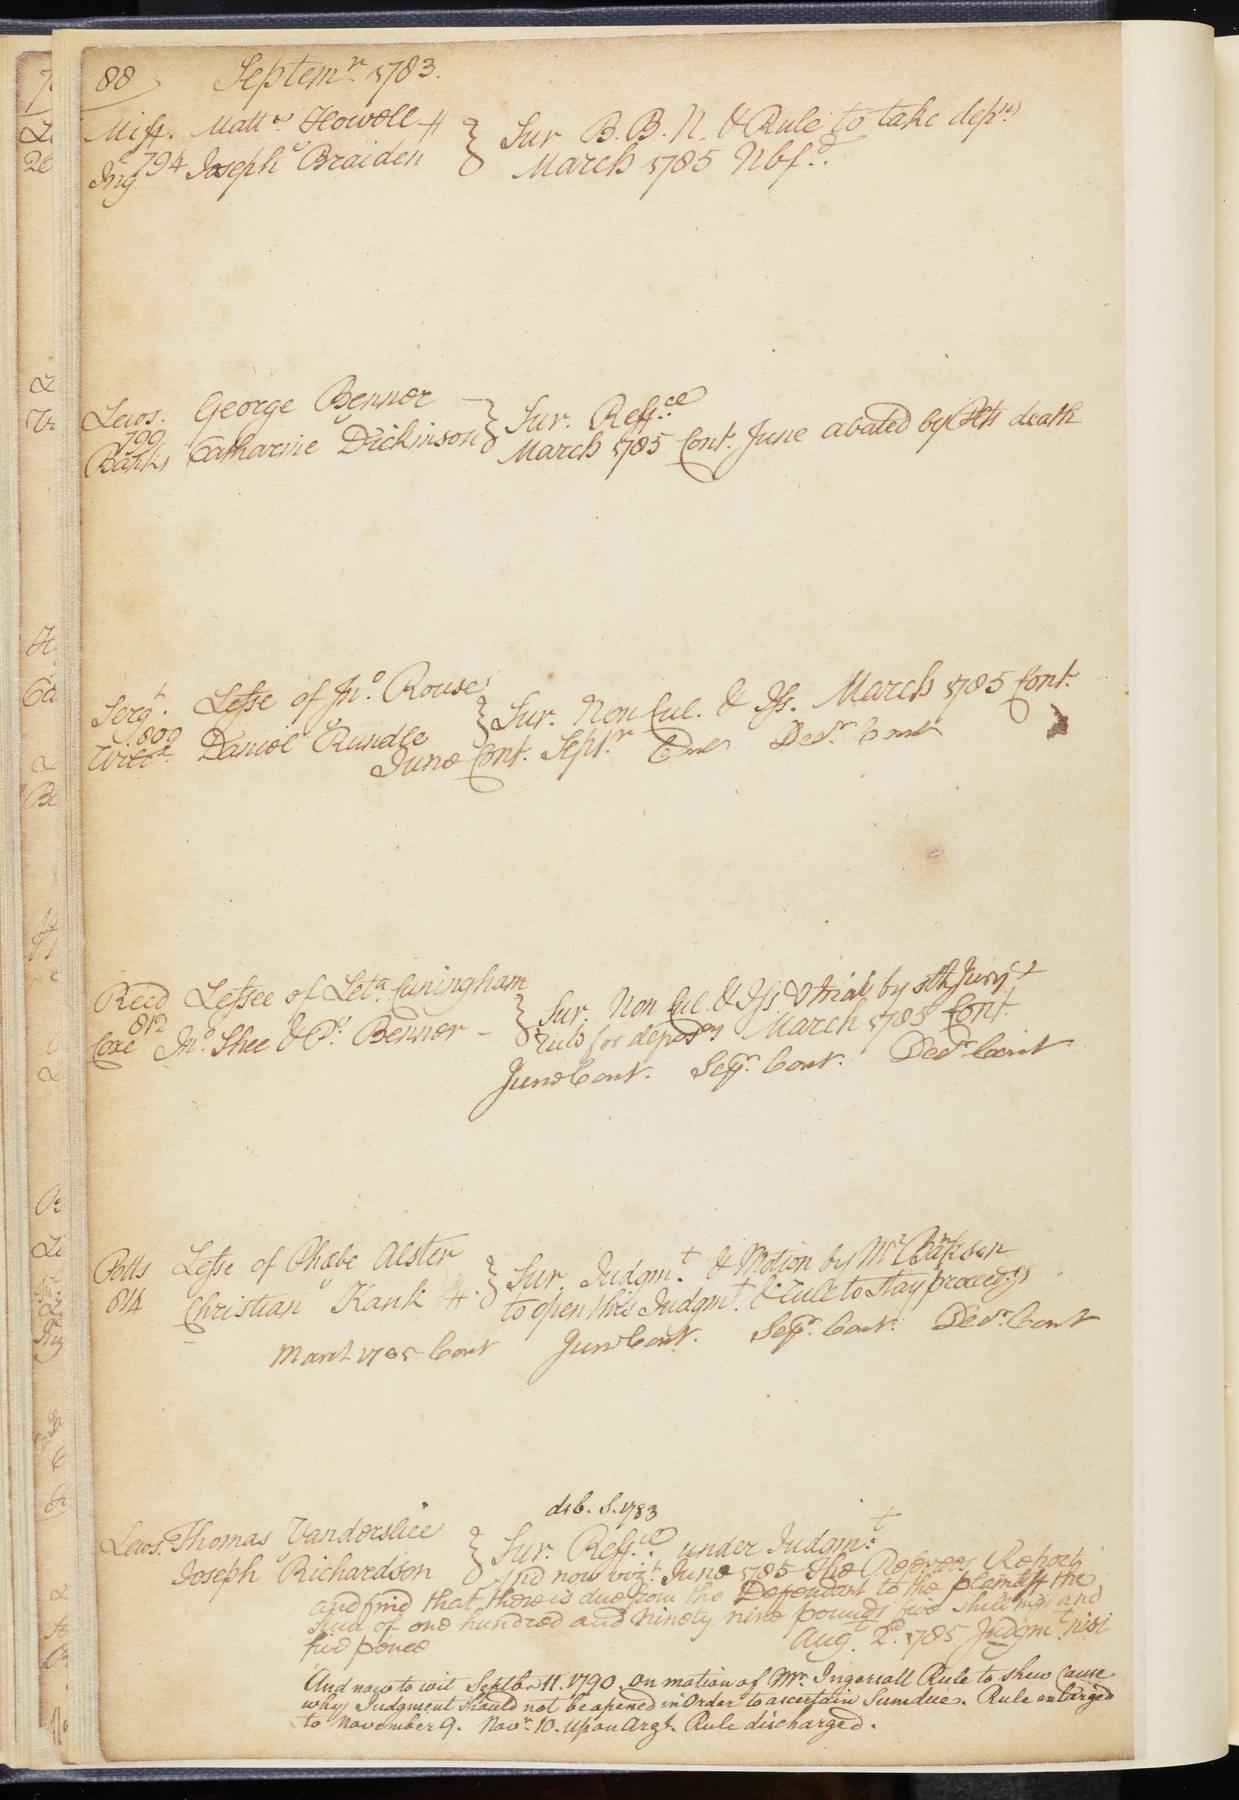 88 Septemr. 1783.
Miff. Mattw. Howell
v
Ing 794 Joseph Braiden
Sur B.B.N. & Rule to take depns
March 1785 Nbfd.
Lewis. George Benner
v
799
Banks Catharine Dickinson
Sur. Reffce.
March 1785 Cont. June abated by death
Sergt. Lesse of Jno. Rouse
v
809
Wilcx Daniel Rundle
Sur. Non Cul. & Iss. March 1785 Cont.
June Cont. Septr. Cont Decr. Cont
Reed Lessee of Leta. Cuningham
v
812
Coxe Jno. Shee & P. Benner
Sur. Non Cul. & Iss & trial by Jury
rule for deposns March 1785 Cont.
June Cont. Sepr. Cont. Decr. Cont
Potts Lesse of Phæbe Alster
v
814 Christian Kank
Sur. Judgmt. & Motion by Mr.
to open this Judgmt. & rule to stay proceedgs
March 1785 Cont June Cont. Sepr. Cont. Decr. Cont
deb. S. 1783
Lewis. Thomas Vanderslice
v
Joseph Richardson
Sur. Reffce. under Judgmt.
And now vizt. June 1785 The Referees Report
and find that there is due from the Defendant to the plaintiff the
Sum of one hundred and ninety nine pounds five shillings and
five pence Aug. 2d. 1785 Judgmt nisi
And now to wit Septbr 11. 1790. on motion of Mr. Ingersoll Rule to shew Cause
why Judgment should not be opened in Order to ascertain Sum due. Rule enlarged
to November 9. Novr. 10. upon Argt. Rule discharged.